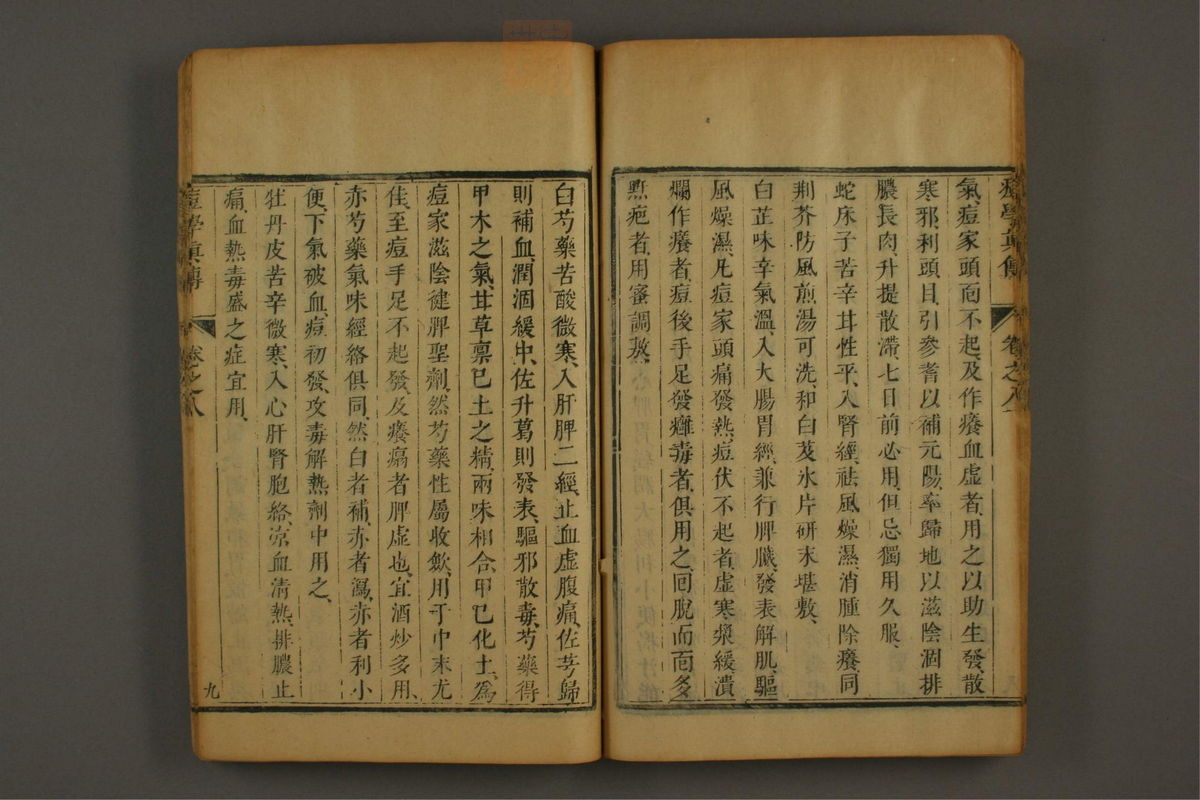 痘學真傳 卷之八
氣、痘家頭面不起、及作癢血虛者、用之以助生發、散
寒邪、利頭目、引參耆以補元陽、率歸地以滋陰涸、排
膿長肉、升提散滯、七日前必用、但忌獨用久服、
蛇床子苦辛甘性平、入腎經、祛風燥濕、消腫除癢、同
荆芥防風煎湯可洗、和白芨氷片研末堪敷、
白芷味辛氣溫、入大腸胃經、兼行脾臟、發表解肌、驅
風燥濕、凡痘家頭痛發熱、痘伏不起者、虛寒漿緩、潰
爛作癢者、痘後手足發癰毒者、俱用之、回脫而面多
㸃疤者、用蜜調敖、
白芍藥苦酸微寒、入肝脾二經、止血虛腹痛、佐芎歸
則補血、潤涸緩中、佐升葛則發表、驅邪散毒、芍藥得
甲木之氣、甘草稟巳土之精、兩味相合、甲巳化土、為
痘家滋陰健脾聖劑、然芍藥性屬收斂、用于中末尤
佳、至痘手足不起發、及癢癟者脾虛也、宜酒炒多用、
赤芍藥氣味經絡俱同、然白者補、赤者瀉、赤者利小
便、下氣破血、痘初發、攻毒解熱劑中用之、
牡丹皮苦辛微寒、入心肝腎胞絡、凉血清熱、排膿止
痛、血熱毒盛之症宜用、
痘學真傳 卷之八
九